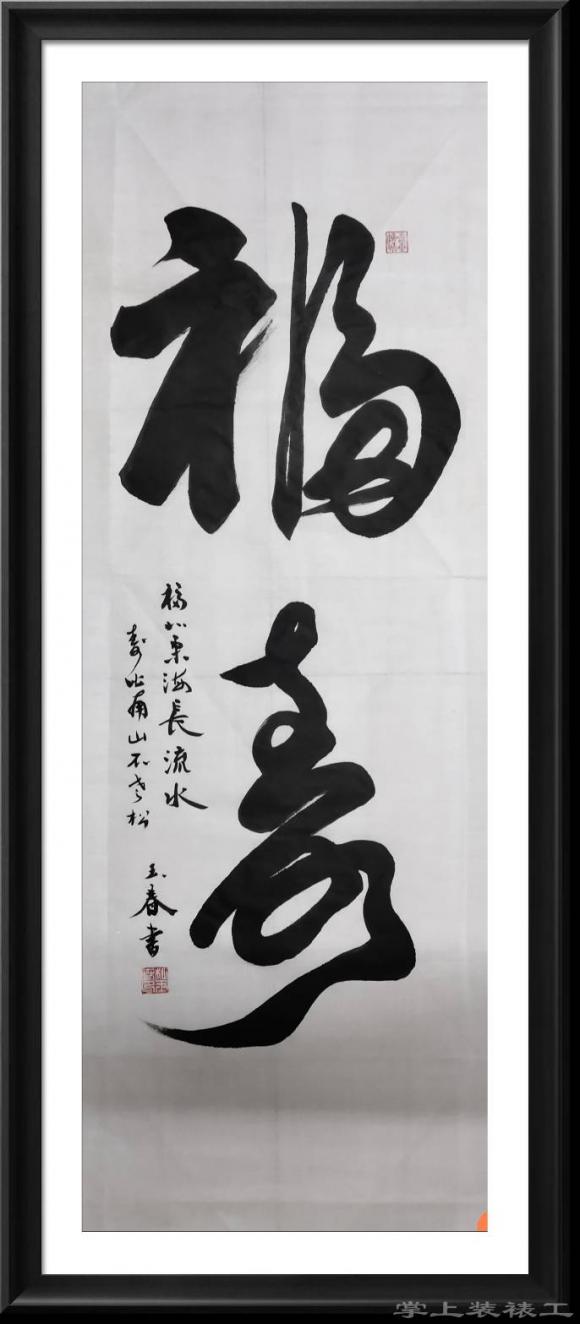 福
壽
福如東海長流水
壽比南山不老松
玉春書
掌上装裱工